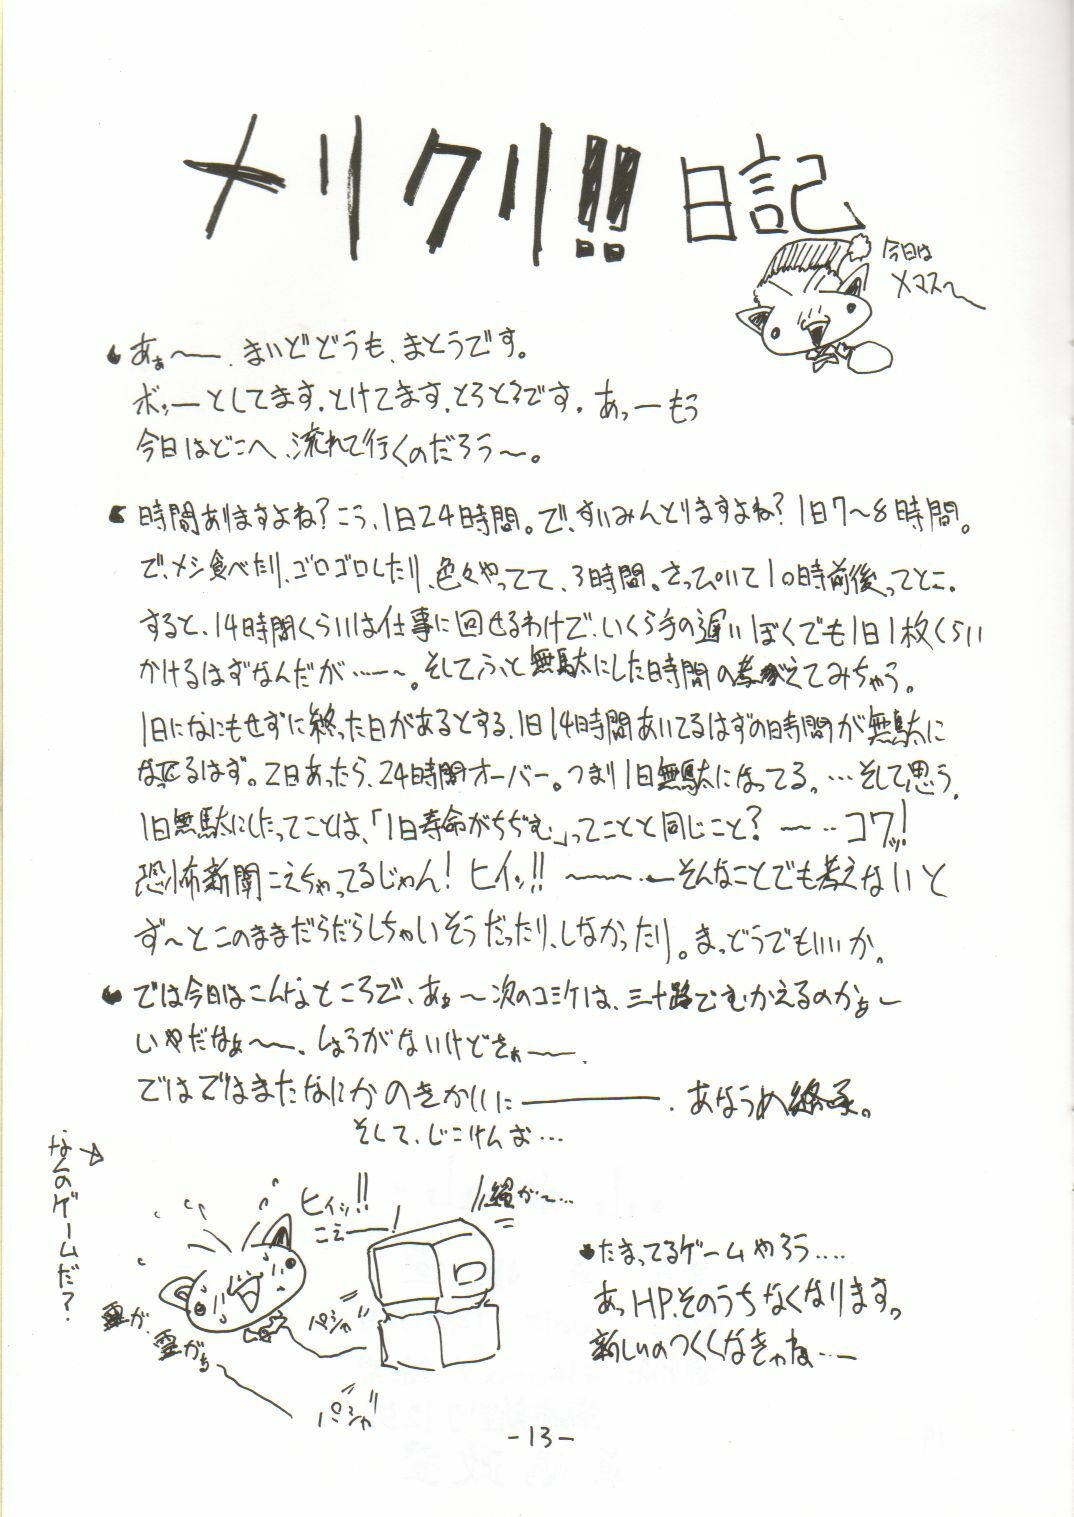 メリクリ!! 日記
今日は
Xマス〜
あぁ〜ー、まいどどうも、まとうです。
ボッーとしてます、とけてます、とろとろです。あっーもう
今日はどこへ、流れて行くのだろう〜。
時間ありますよね?こう、1日24時間。で、すいみんとりますよね?1日7〜8時間。
で、メシ食べたり、ゴロゴロしたり、色々やってて、3時間。さっぴいて10時前後ってとこ。
すると、14時間くらいは仕事に回せるわけで、いくら手の遅いぼくでも1日1枚くらい
かけるはずなんだが……〜。そしてふと無駄にした時間の考がえてみちゃう。
1日になにもせずに終った日があるとする、1日14時間あいてるはずの時間が無駄に
なってるはず。2日あったら、24時間オーバー。つまり1日無駄になってる。…そして思う。
1日無駄にしたってことは、「1日寿命がちぢむ」ってことと同じこと?〜‥コワッ!
恐怖新聞こえちゃってるじゃん!ヒイッ!!〜〜‥ーそんなことでも考えないと
ず〜とこのままだらだらしちゃいそうだったり、しなかったり。まっどうでもいいか。
では今日はこんなところで、あぁ〜次のコミケは、三十路でむかえるのかぁー
いやだなぁ〜〜、しょうがないけどさぁ〜ー、
ではではまたなにかのきかいにーーー、あなうめ終了。
そして、じこけんお…
なんのゲームだ?
ヒィッ!!
こえーー!
霊が、
霊がぁ
パシャ
パシャ
たまってるゲームやろう‥‥
あっHP、そのうちなくなります。
新しいのつくくなきゃね…ー
-13-